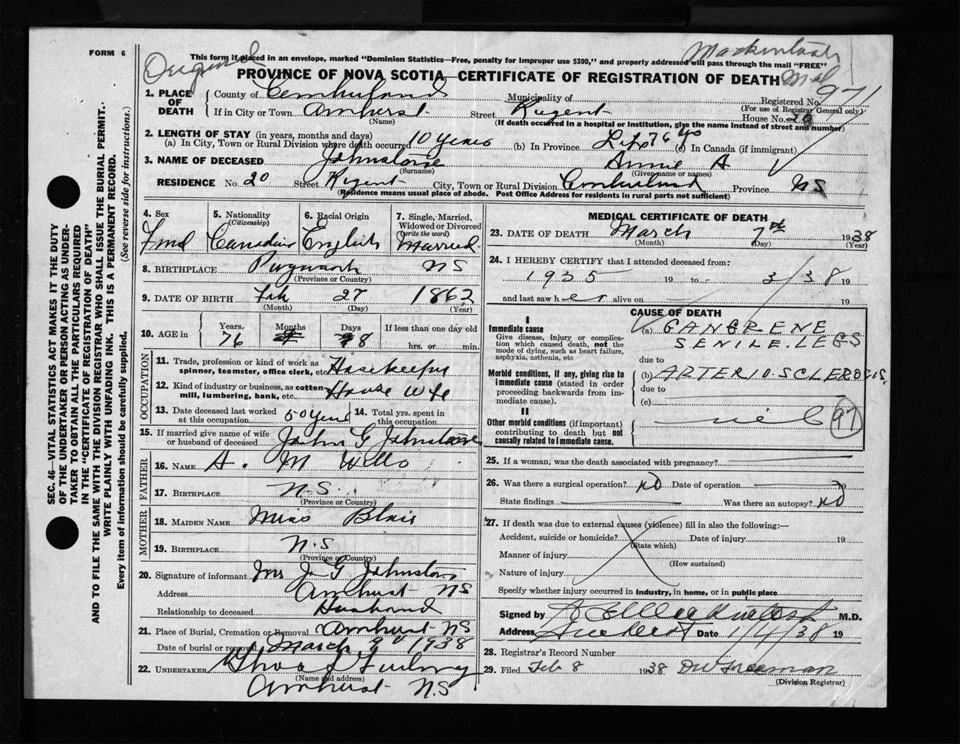 FORM 6
Original
Mackintosh
This form if placed in an envelope, marked "Dominion Statistics—Free, penalty for improper use $300," and properly addressed will pass through the mail "FREE"
PROVINCE OF NOVA SCOTIA—CERTIFICATE OF REGISTRATION OF DEATH
971
1. PLACE OF DEATH
County of Cumberland Municipality of Registered No.
(For use of Registrar General only)
If in City or Town Amherst Street Regent House No. 20
(Name) (If death occurred in a hospital or institution, give the name instead of street and number)
2. LENGTH OF STAY (in years, months and days)
(a) In City, Town or Rural Division where death occurred 10 years (b) In Province Life 76 yrs (c) In Canada (if immigrant)
3. NAME OF DECEASED Johnstone Annie A
(Surname) (Given name or names)
RESIDENCE No. 20 Street Regent City, Town or Rural Division Cumberland Province NS
(Residence means usual place of abode. Post Office Address for residents in rural parts not sufficient)
4. Sex
5. Nationality (Citizenship)
6. Racial Origin
7. Single, Married, Widowed or Divorced (write the word)
Canadian English Married
8. BIRTHPLACE Pugwash NS
(Province or Country)
9. DATE OF BIRTH Feb 27 1862
(Month) (Day) (Year)
10. AGE in
Years. Months Days If less than one day old
76 8 hrs. or min.
OCCUPATION
11. Trade, profession or kind of work as spinner, teamster, office clerk, etc.
12. Kind of industry or business, as cotton-mill, lumbering, bank, etc. House Wife
13. Date deceased last worked at this occupation 50 years 14. Total yrs. spent in this occupation
15. If married give name of wife or husband of deceased John G Johnstone
FATHER
16. NAME A. M Wells
17. BIRTHPLACE N.S.
(Province or Country)
MOTHER
18. MAIDEN NAME Miss Blair
19. BIRTHPLACE N.S
(Province or Country)
20. Signature of informant Mr J. G Johnstone
Address Amherst NS
Relationship to deceased Husband
21. Place of Burial, Cremation or Removal Amherst NS
Date of burial or removal March 9" 1938
22. UNDERTAKER
(Name and address)
Amherst N.S
MEDICAL CERTIFICATE OF DEATH
23. DATE OF DEATH March 7th 1938
(Month) (Day) (Year)
24. I HEREBY CERTIFY that I attended deceased from:
1935 19 to 3/38 19
and last saw her alive on 19
CAUSE OF DEATH
I
Immediate cause
Give disease, injury or complication which caused death, not the mode of dying, such as heart failure, asphyxia, asthenia, etc
(a) GANGRENE
SENILE. LEGS
due to
Morbid conditions, if any, giving rise to immediate cause (stated in order proceeding backwards from immediate cause).
(b) ARTERIO. SCLEROSIS.
due to
(c)
II
Other morbid conditions (if important) contributing to death but not causally related to immediate cause.
97
25. If a woman, was the death associated with pregnancy?
26. Was there a surgical operation? NO Date of operation 19
State findings Was there an autopsy? NO
27. If death was due to external causes (violence) fill in also the following:—
Accident, suicide or homicide? Date of injury 19
(State which)
Manner of injury
(How sustained)
Nature of injury
Specify whether injury occurred in industry, in home, or in public place
Signed by M.D.
Address Amherst Date 19
28. Registrar's Record Number
29. Filed Feb 8 1938 DW Freeman
(Division Registrar)
SEC. 46—VITAL STATISTICS ACT MAKES IT THE DUTY
OF THE UNDERTAKER OR PERSON ACTING AS UNDER-
TAKER TO OBTAIN ALL THE PARTICULARS REQUIRED
IN THE "CERTIFICATE OF REGISTRATION OF DEATH"
AND TO FILE THE SAME WITH THE DIVISION REGISTRAR WHO SHALL ISSUE THE BURIAL PERMIT.
WRITE PLAINLY WITH UNFADING INK. THIS IS A PERMANENT RECORD.
Every item of information should be carefully supplied. (See reverse side for instructions.)